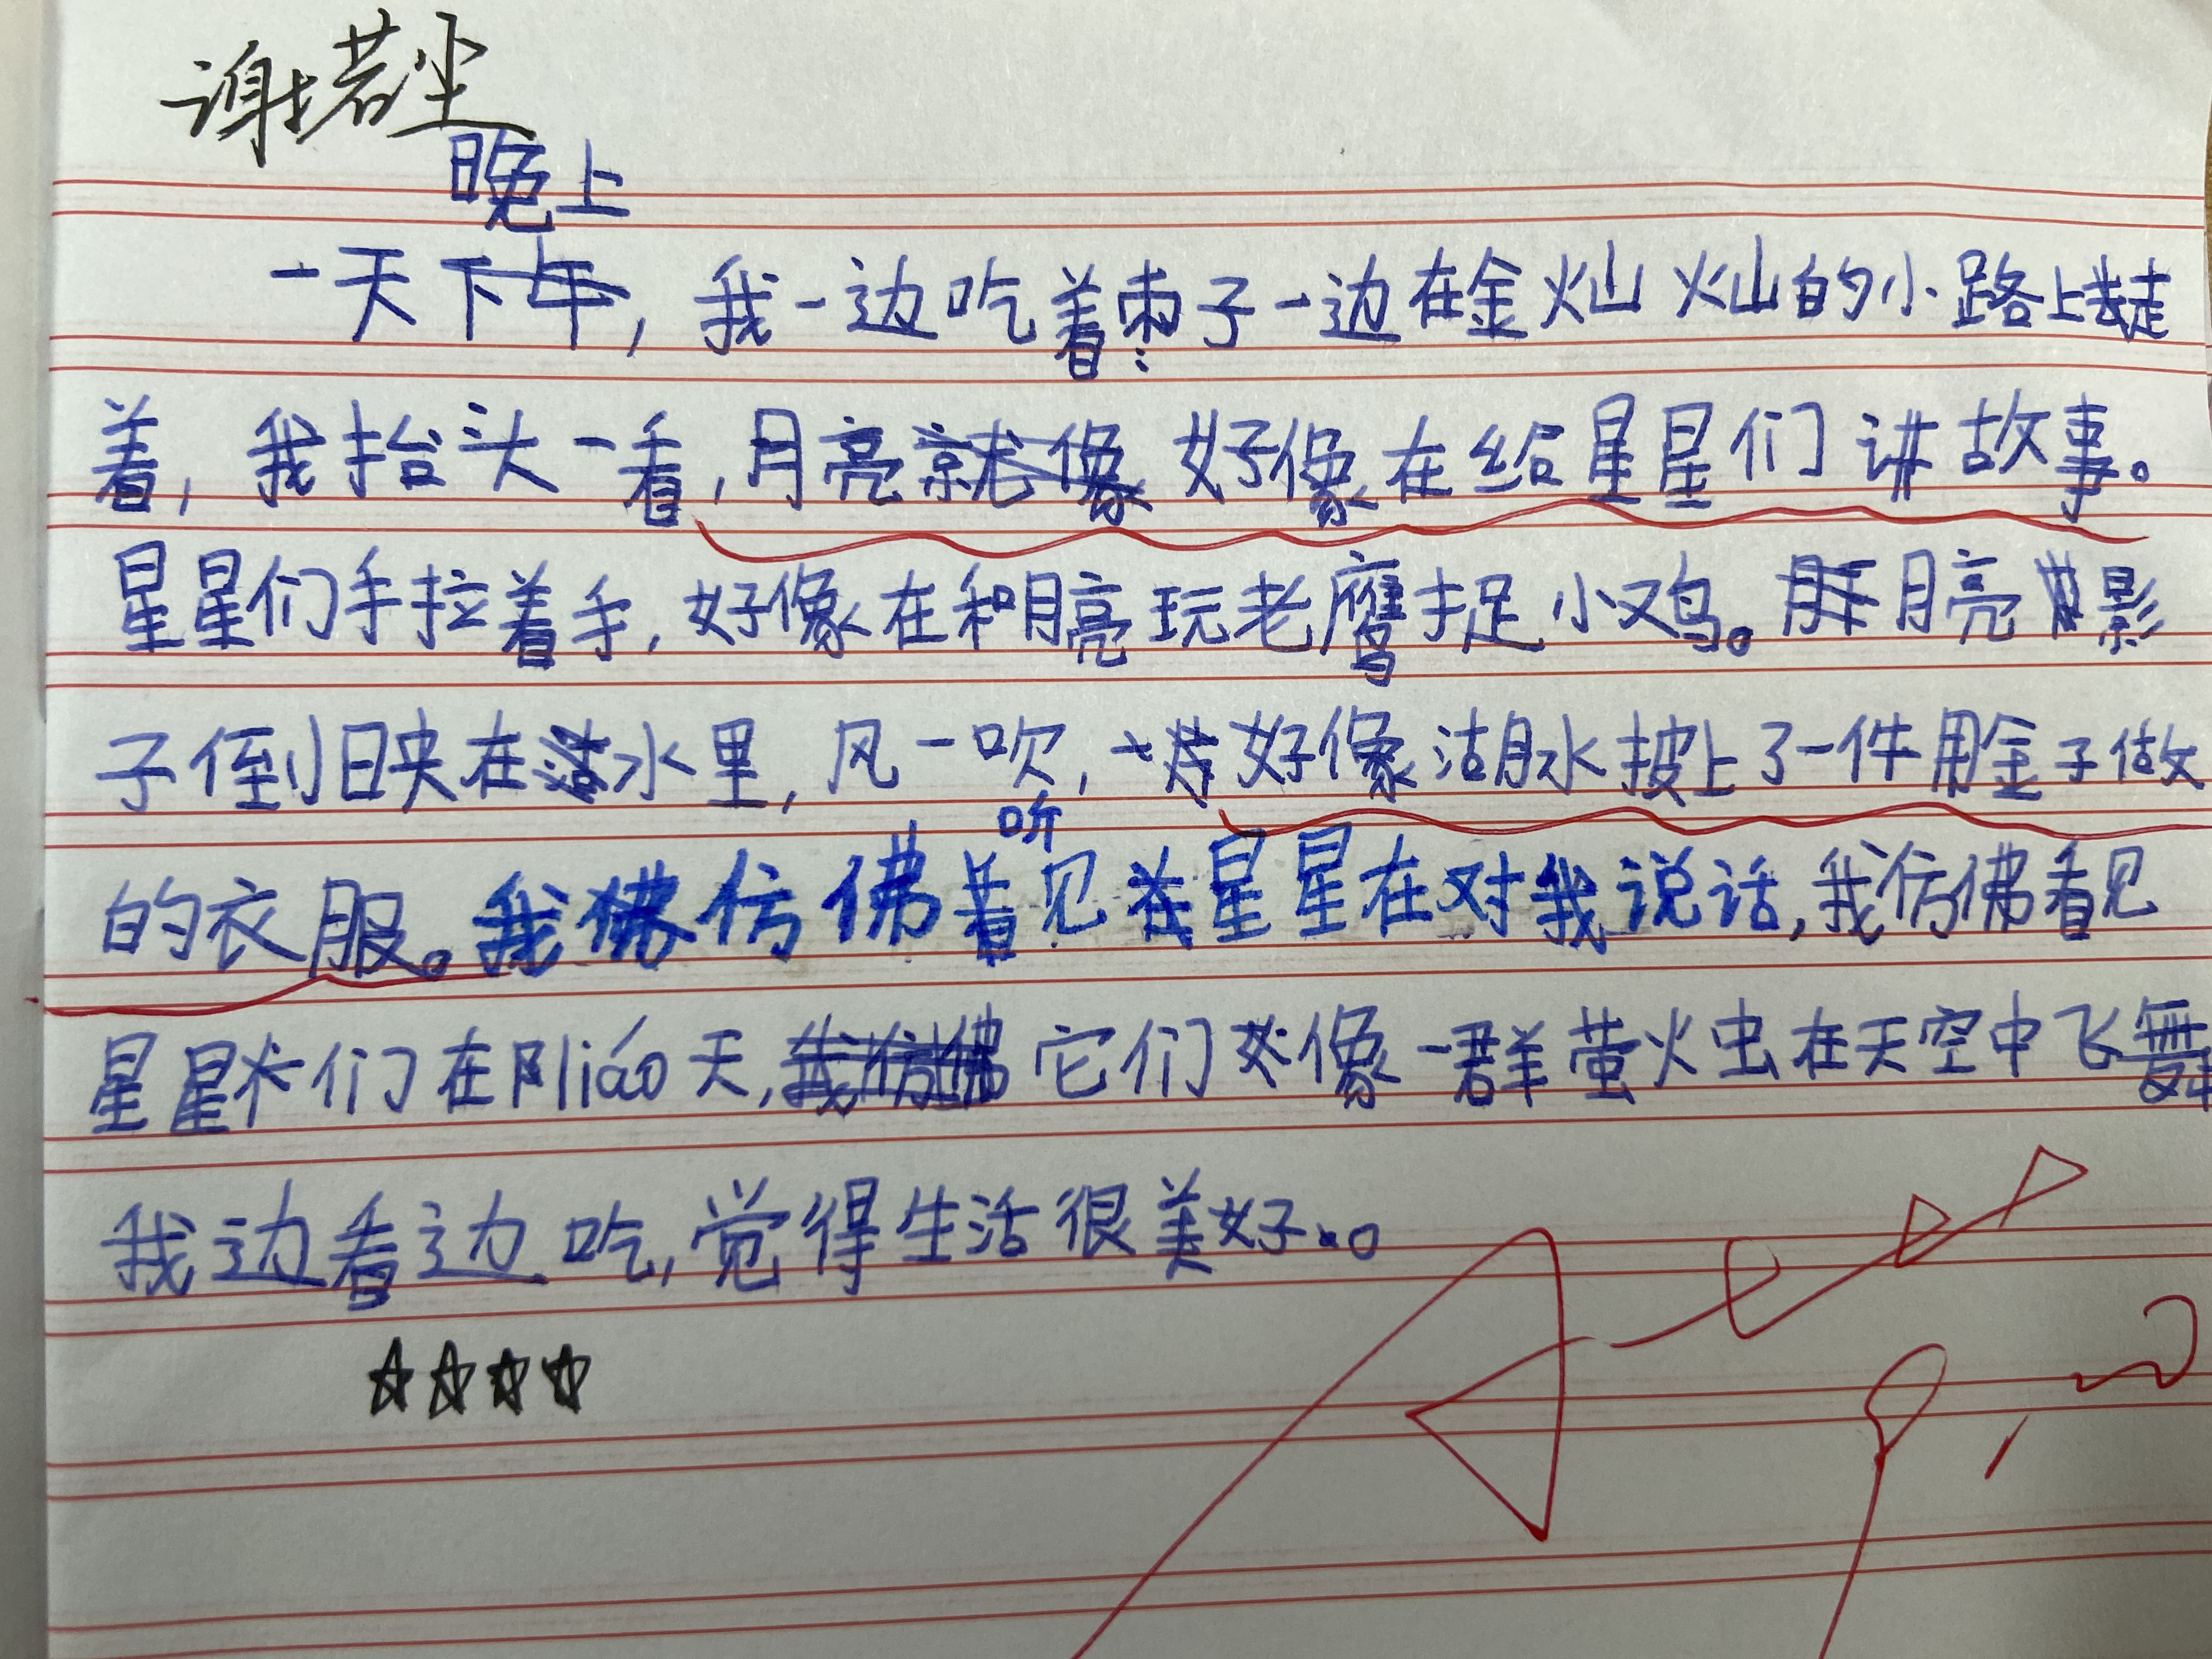 谢若尘
晚上
一天下午，我一边吃着枣子一边在金灿灿的小路上走
着，我抬头一看，月亮就像好像在给星星们讲故事。
星星们手拉着手，好像在和月亮玩老鹰捉小鸡。月亮影
子倒映在水里，风一吹，好像湖水披上了一件用金子做
听
的衣服。我佛仿佛看见在星星在对我说话，我仿佛看见
星星们在阝liáo天，我仿佛它们好像一群萤火虫在天空中飞舞
我边看边吃，觉得生活很美好。
☆☆☆☆